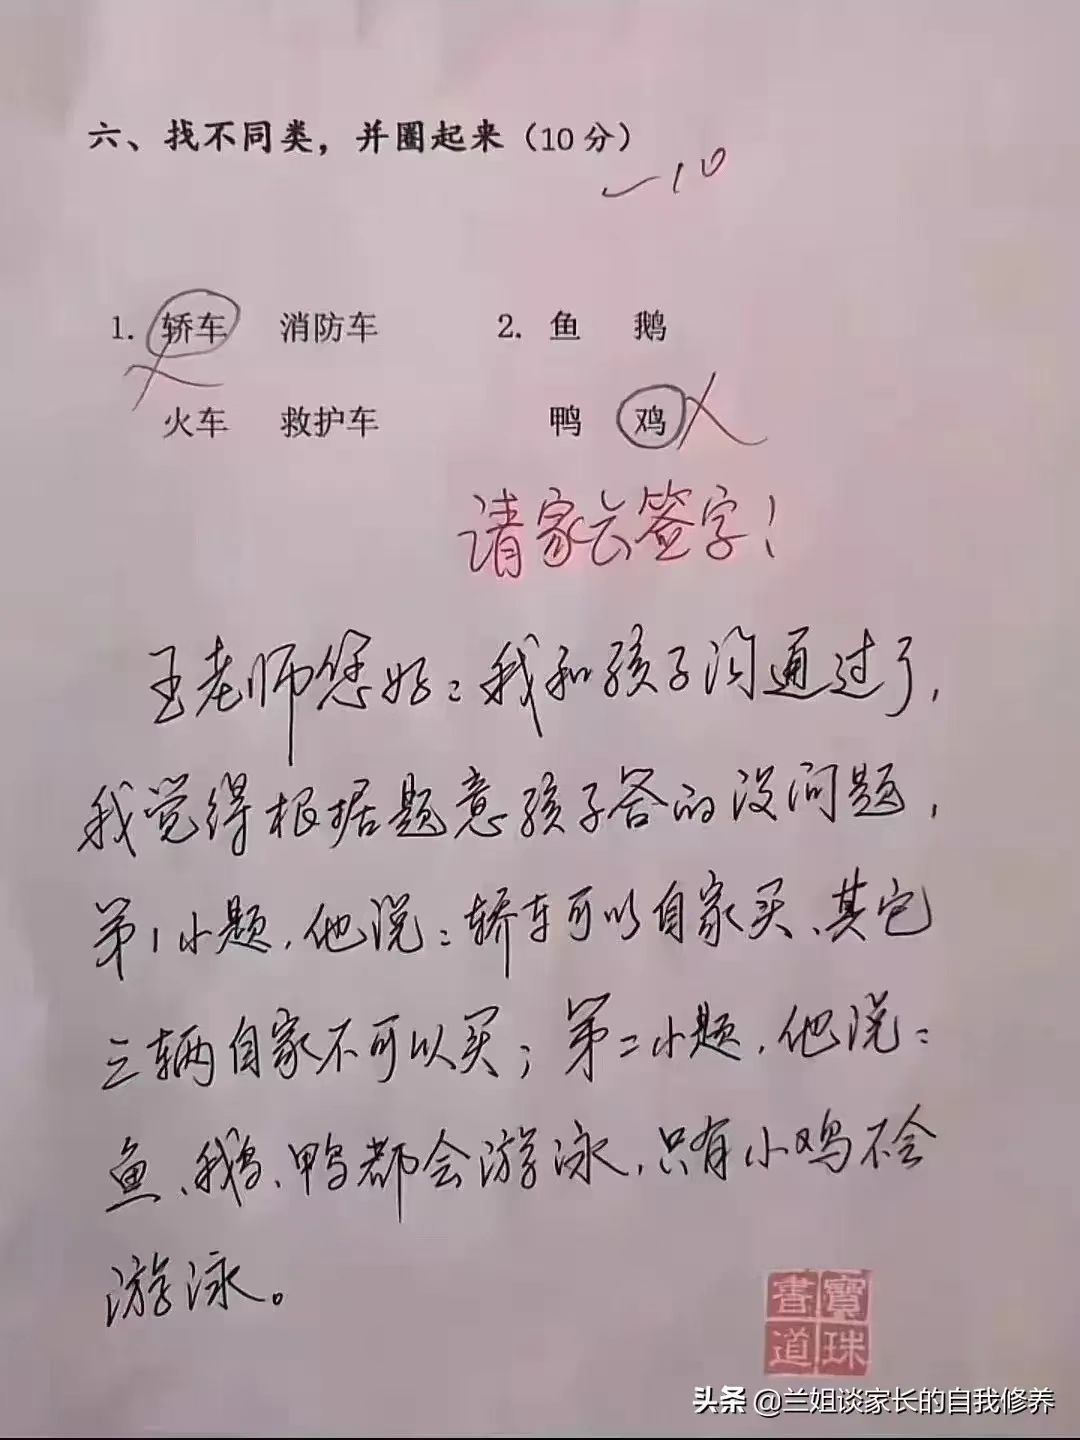 六、找不同类，并圈起来（10分）
-10
1. 轿车 消防车 2. 鱼 鹅
火车 救护车 鸭 鸡
请家长签字！
王老师您好：我和孩子沟通过了，
我觉得根据题意孩子答的没问题，
第1小题，他说：轿车可以自家买、其它
三辆自家不可以买；第二小题，他说：
鱼、鹅、鸭都会游泳，只有小鸡不会
游泳。
書寶
道珠
头条 @兰姐谈家长的自我修养